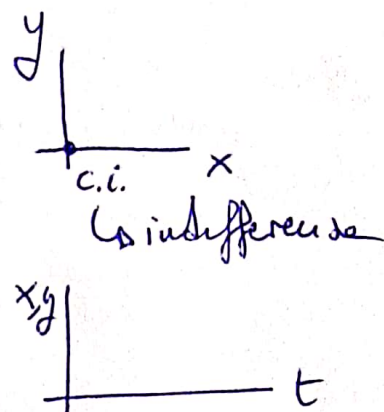 y
x
c.i.
↳ indifferenza
x,y
t